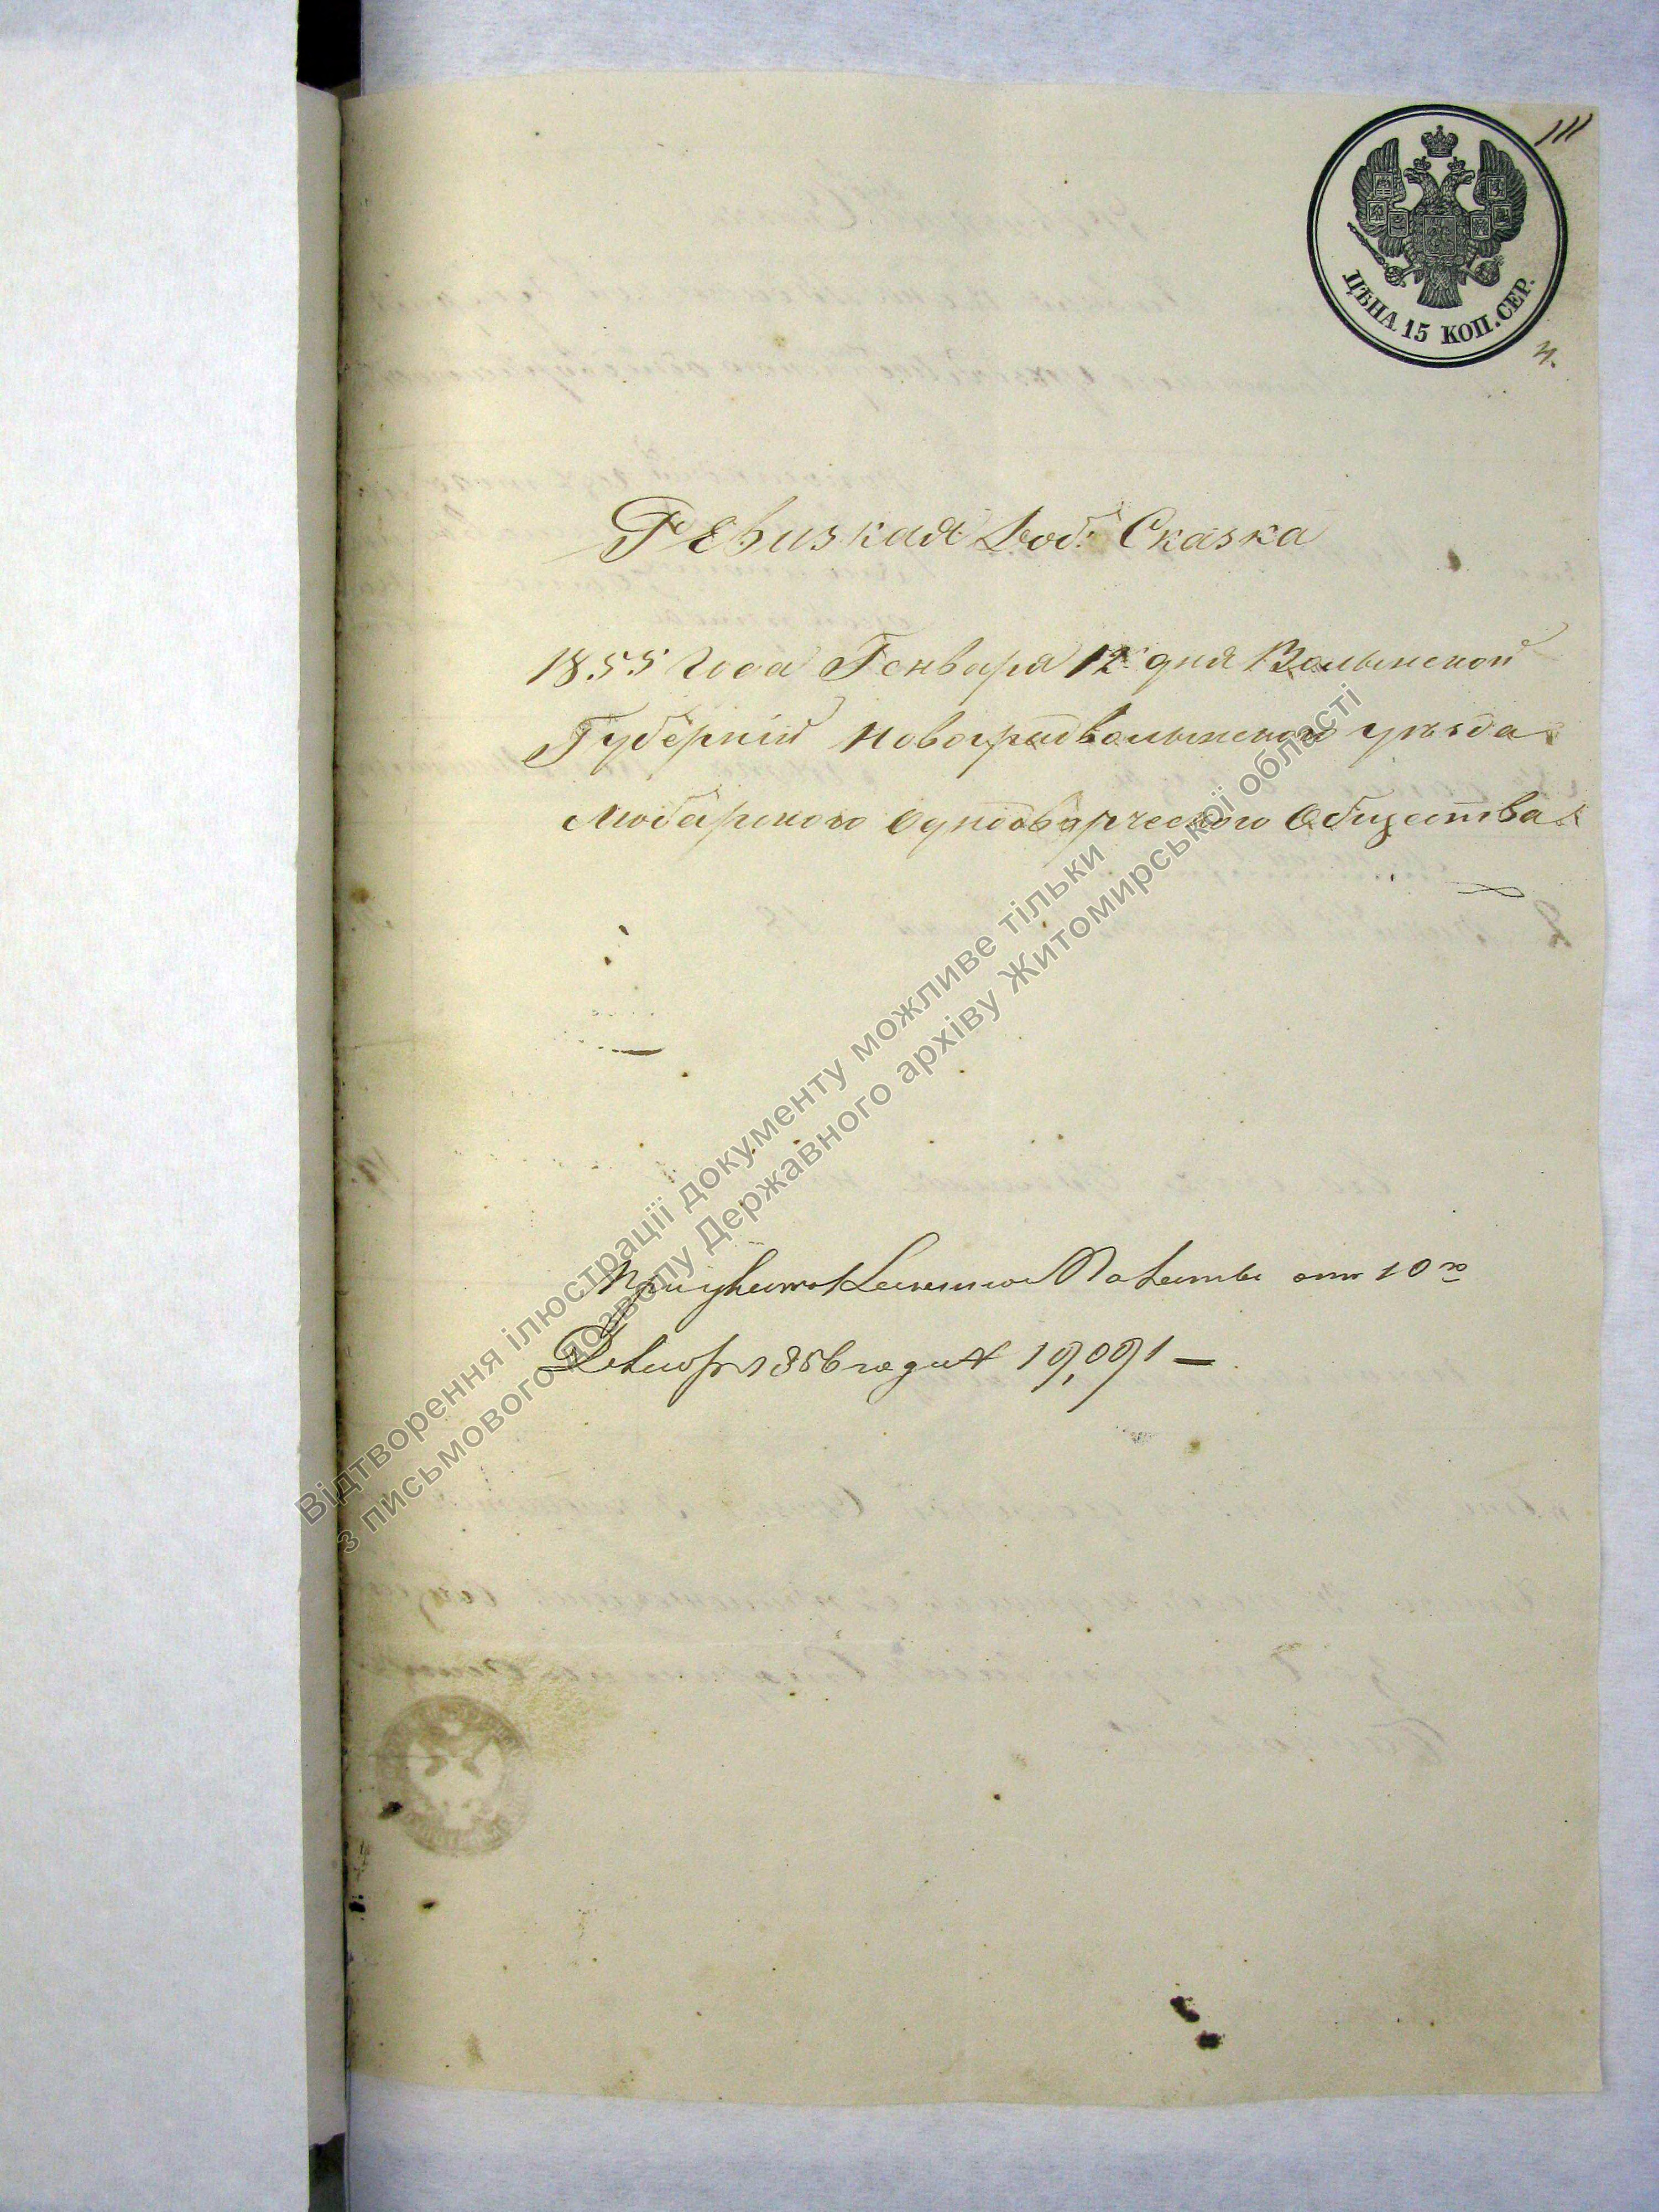 111
ЦѢНА 15 КОП. СЕР.
Ревизкая Доб: Сказка
1855 Года Генваря 12 дня Волынской
Губерніи Новоградволынского уѣзда
Любарского Однодворческого Общества
При указѣ Казенной Палаты отъ 10го
1856 года № 19,091 —
Відтворення ілюстрації документу можливе тільки
з письмового дозволу Державного архіву Житомирської області